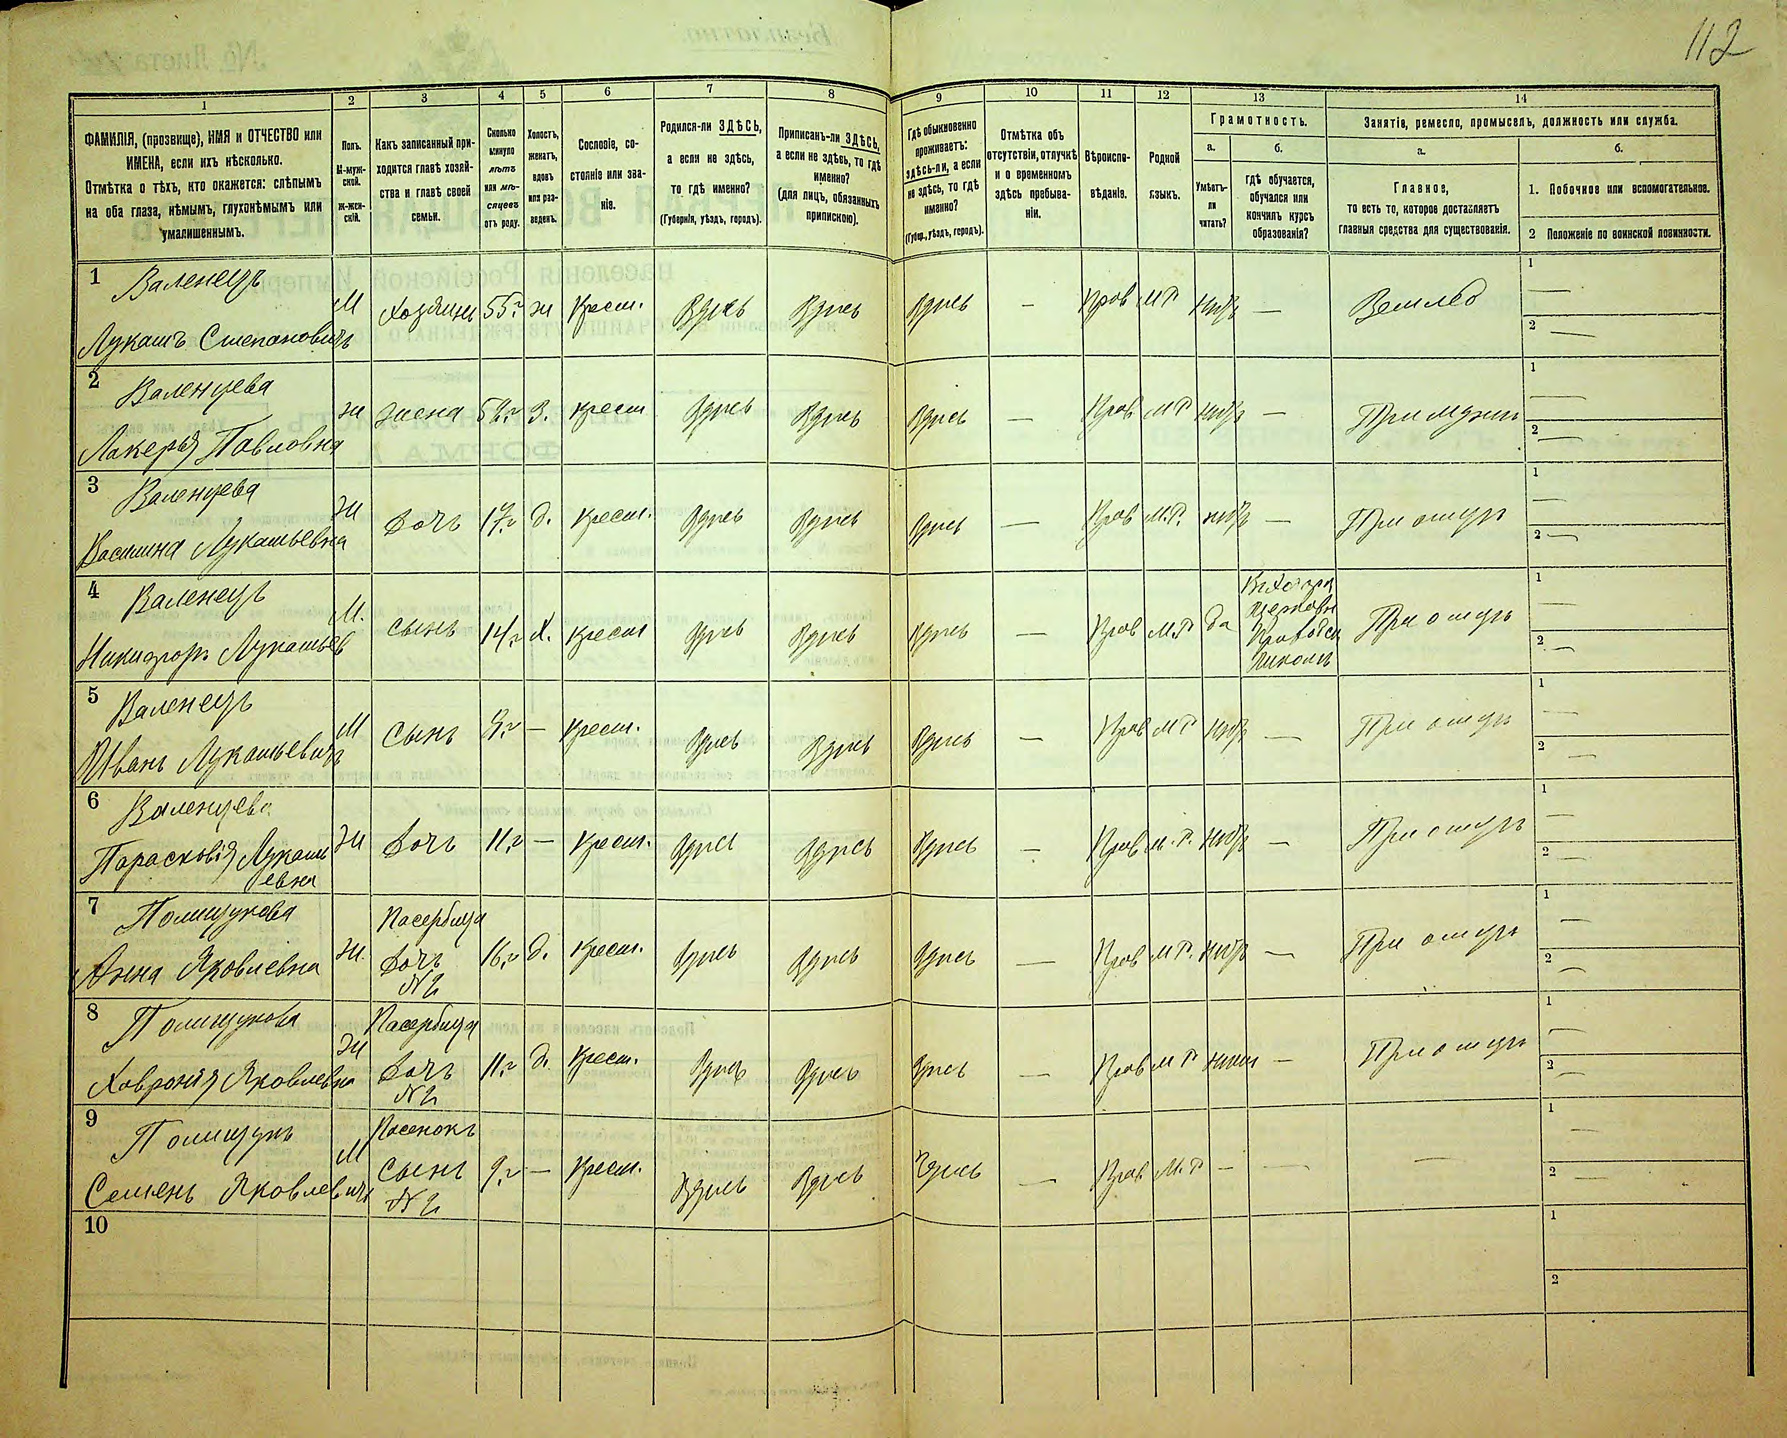 112
1 2 3 4 5 6 7 8 9 10 11 12 13 14
ФАМИЛІЯ, (прозвище), ИМЯ и ОТЧЕСТВО или
ИМЕНА, если ихъ нѣсколько.
Отмѣтка о тѣхъ, кто окажется: слѣпымъ
на оба глаза, нѣмымъ, глухонѣмымъ или
умалишеннымъ.
Полъ.
М-муж-
ской.
Ж-жен-
скій.
Какъ записанный при-
ходится главѣ хозяй-
ства и главѣ своей
семьи.
Сколько
минуло
лѣтъ
или мѣ-
сяцевъ
отъ роду.
Холостъ,
женатъ,
вдовъ
или раз-
веденъ.
Сословіе, со-
стояніе или зва-
ніе.
Родился-ли ЗДѢСЬ,
а если не здѣсь,
то гдѣ именно?
(Губернія, уѣздъ, городъ).
Приписанъ-ли ЗДѢСЬ,
а если не здѣсь, то гдѣ
именно?
(для лицъ, обязанныхъ
припискою).
Гдѣ обыкновенно
проживаетъ:
здѣсь-ли, а если
не здѣсь, то гдѣ
именно?
(Губер., уѣздъ, городъ).
Отмѣтка объ
отсутствіи, отлучкѣ
и о временномъ
здѣсь пребыва-
ніи.
Вѣроиспо-
вѣданіе.
Родной
языкъ.
Грамотность.
а.
Умѣетъ-
ли
читать?
б.
Гдѣ обучается,
обучался или
кончилъ курсъ
образованія?
Занятіе, ремесло, промыселъ, должность или служба.
а.
Главное,
то есть то, которое доставляетъ
главныя средства для существованія.
б.
1. Побочное или вспомогательное.
2 Положеніе по воинской повинности.
1 Валенецъ
Лукашъ Степановичъ М Хозяинъ 55 г ж Крест. Здѣсь Здѣсь Здѣсь — Прав М Р нѣтъ — Землед 1 — 2 —
2 Валенцева
Лакерья Павловна ж жена г З. крест Здѣсь Здѣсь Здѣсь — Прав М Р нѣтъ — При мужѣ 1 — 2 —
3 Валенцева
Лукашевна ж дочь г д. крест. Здѣсь Здѣсь Здѣсь — Прав М.Р. нѣтъ — При отцѣ 1 — 2 —
4 Валенецъ
Никифоръ Лукашев М. сынъ 14 г Х. крест Здѣсь Здѣсь Здѣсь — Прав М.Р да церковн
приходск
школѣ При отцѣ 1 — 2 —
5 Валенецъ
Иванъ Лукашевичъ М сынъ г — крест. Здѣсь Здѣсь Здѣсь — Прав М Р нѣтъ — При отцѣ 1 — 2 —
6 Валенцева
Парасковія Лукаш
евна ж дочь 11 г — Крест. Здѣсь Здѣсь Здѣсь — Прав М.Р. нѣтъ — При отцѣ 1 — 2 —
7 Полищукова
Анна Яковлевна ж. Пасербица
дочь
№ 2 16 г д. Крест. Здѣсь Здѣсь Здѣсь — Прав М Р. нѣтъ — При отцѣ 1 — 2 —
8 Полищукова
Ховронія Яковлевна ж Пасербица
дочь
№ 2 11 г д. Крест. Здѣсь Здѣсь Здѣсь — Прав М Р — При отцѣ 1 — 2 —
9 Полищукъ
Семенъ Яковлевичъ М Пасенокъ
сынъ
№ 2 9 г — Крест. Здѣсь Здѣсь Здѣсь — Прав М.Р — — — 1 — 2 —
10 1 2